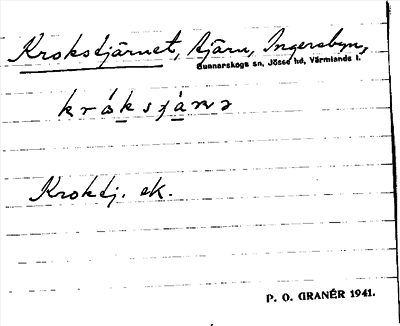 Krokstjärnet, tjärn, Ingersbyn,
Gunnarskogs sn, Jösse hd, Värmlands l.
Kroktj. ek.
P. O. GRANÉR 1941.